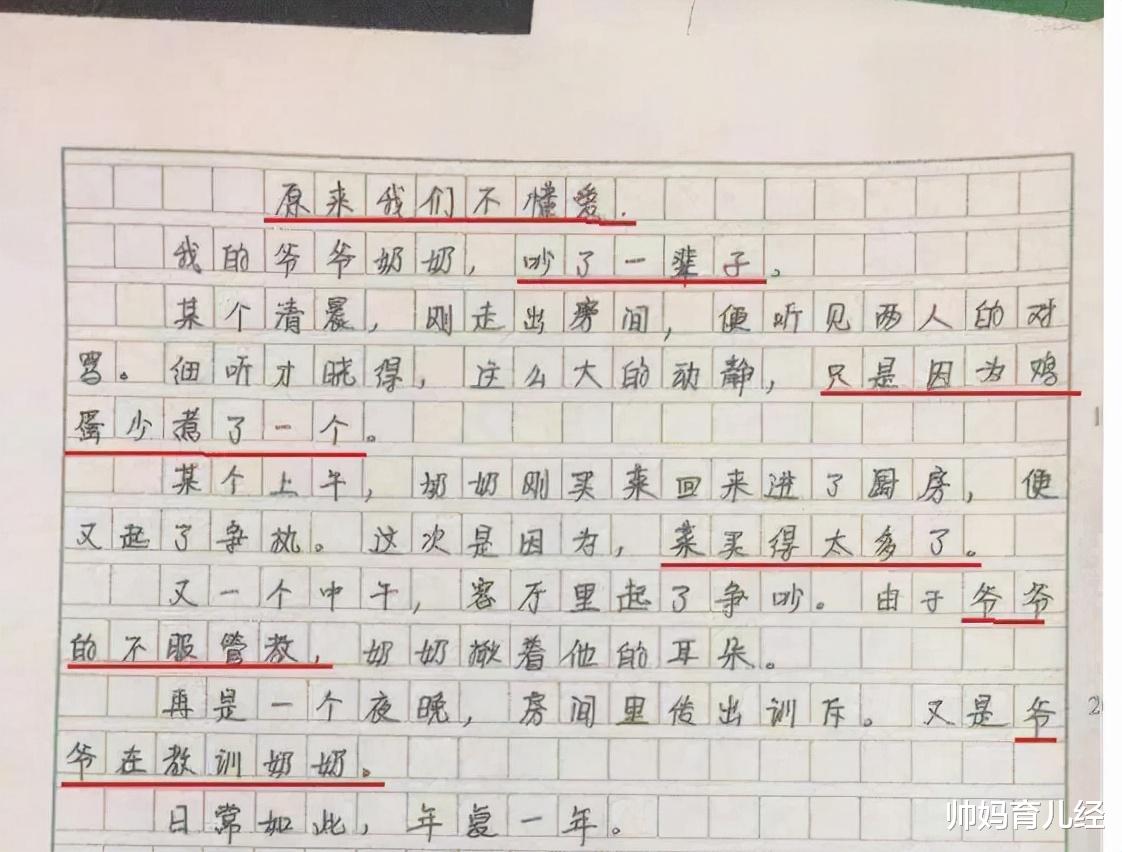 原来我们不懂爱.
我的爷爷奶奶，吵了一辈子。
某个清晨，刚走出房间，便听见两人的对
骂。细听才晓得，这么大的动静，只是因为鸡
蛋少煮了一个。
某个上午，奶奶刚买菜回来进了厨房，便
又起了争执。这次是因为，菜买得太多了。
又一个中午，客厅里起了争吵。由于爷爷
的不服管教，奶奶揪着他的耳朵。
再是一个夜晚，房间里传出训斥。又是爷
2
爷在教训奶奶。
日常如此，年复一年。
帅妈育儿经